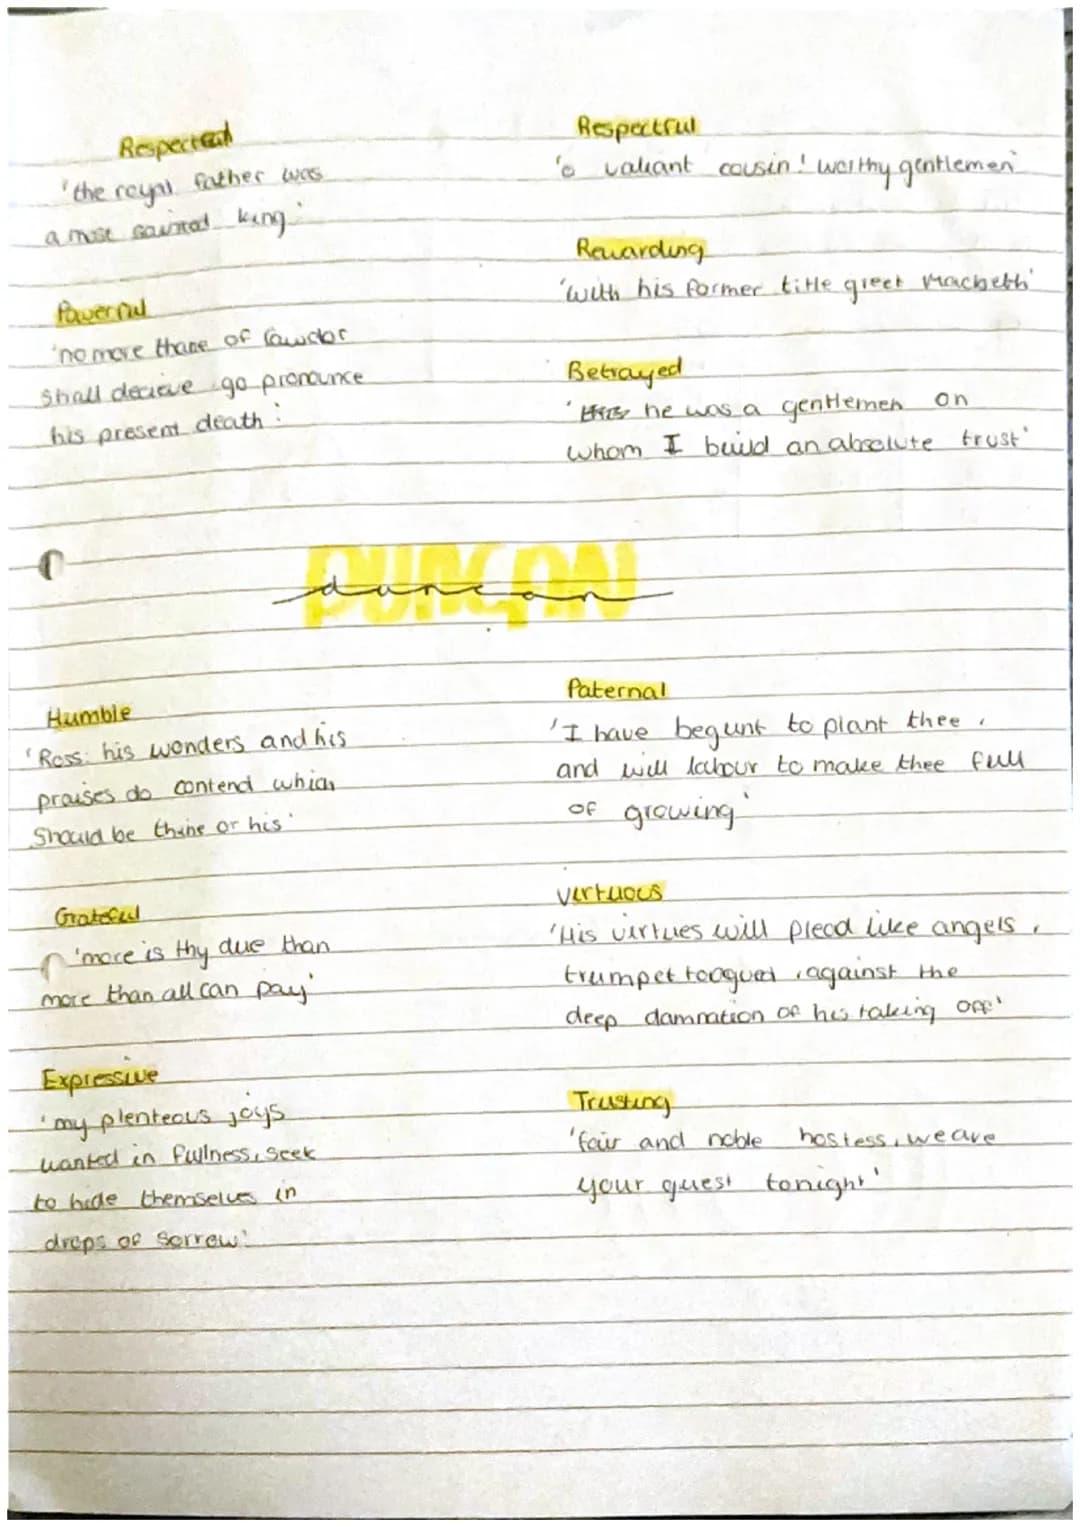 Respected
'the royal father was
a most sainted king'
Powerful
'no more thane of Cawdor
shall decieve go pronounce
his present death'
Respectful
'o valiant cousin! worthy gentlemen'
Rewarding
'with his former title greet Macbeth'
Betrayed
' he was a gentlemen on
whom I build an absolute trust'
DUNCAN
duncan
Humble
'Ross: his wonders and his
praises do contend which
Should be thine or his'
Grateful
'more is thy due than
more than all can pay'
Expressive
'my plenteous joys
wanted in fullness, seek
to hide themselves in
drops of sorrow'
Paternal
'I have begunt to plant thee,
and will labour to make thee full
of growing'
Virtuous
'His virtues will plead like angels,
trumpet tongued, against the
deep damnation of his taking off'
Trusting
'fair and noble hostess, we are
your guest tonight'